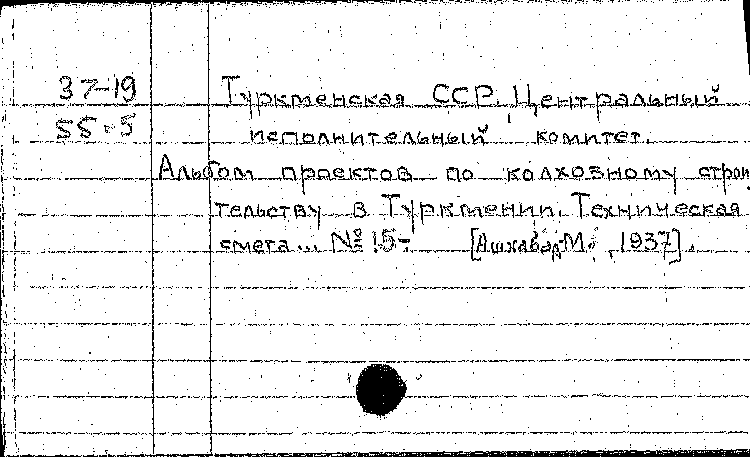 37-19
55-5
Туркменская ССР. Центральный
исполнительный комитет.
Альбом проектов по колхозному строи
тельству в Туркмении. Техническая
смета... № 15- [Ашхабад-М., 1937].